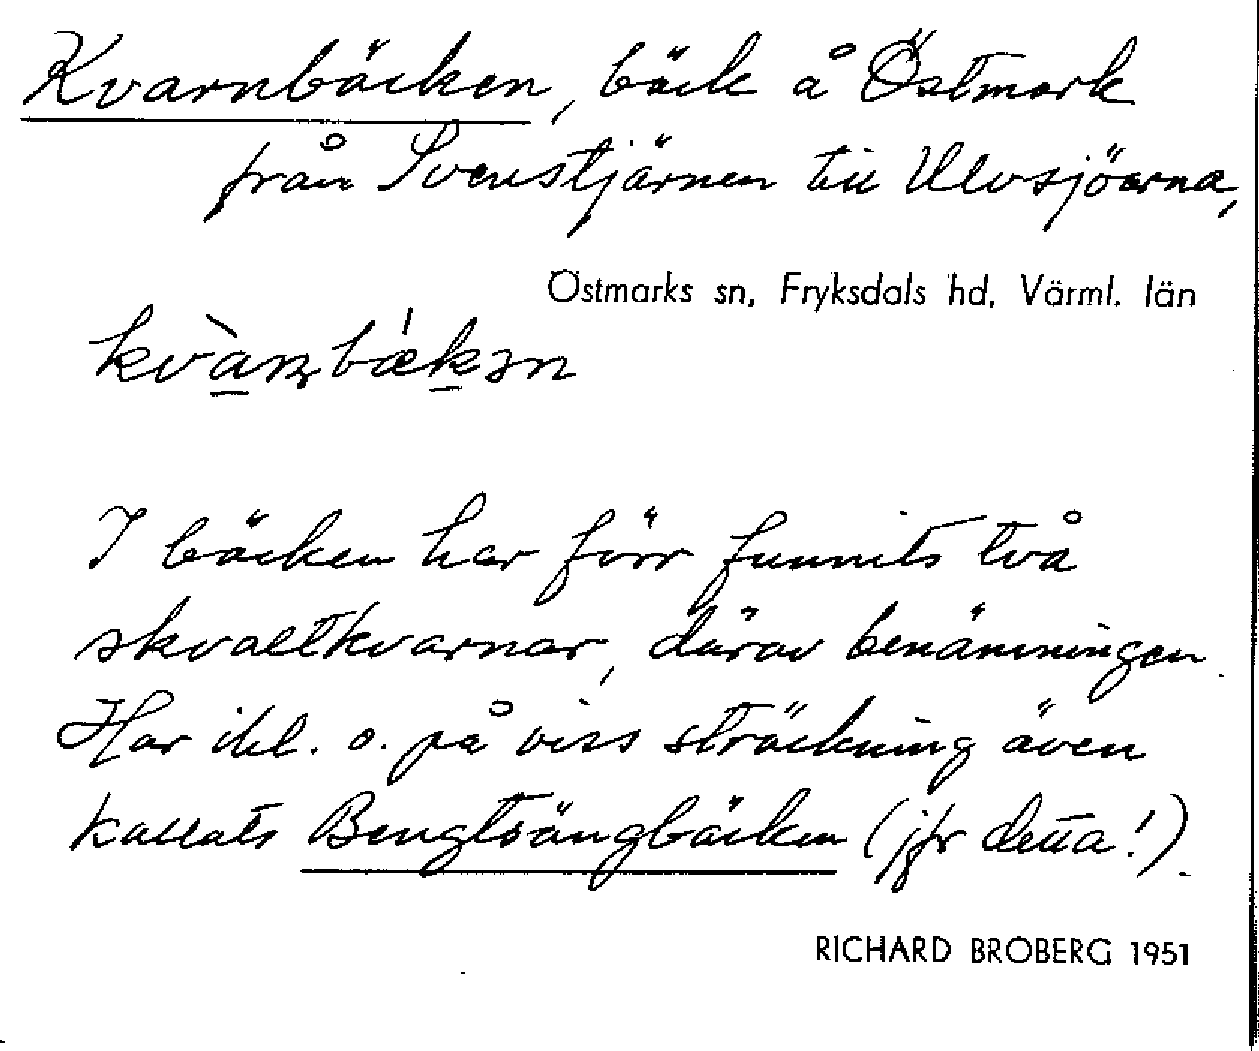 Kvarnbäcken, bäck å Östmark
från Svenstjärnen till Ulvsjöarna,
Östmarks sn, Fryksdals hd, Värml. län
kvàɳbǽkən
I bäcken har förr funnits två
skvaltkvarnar, därav benämningen.
Har ibl. o. på viss sträckning även
kallats Bengtsängbäcken (jfr detta!).
RICHARD BROBERG 1951